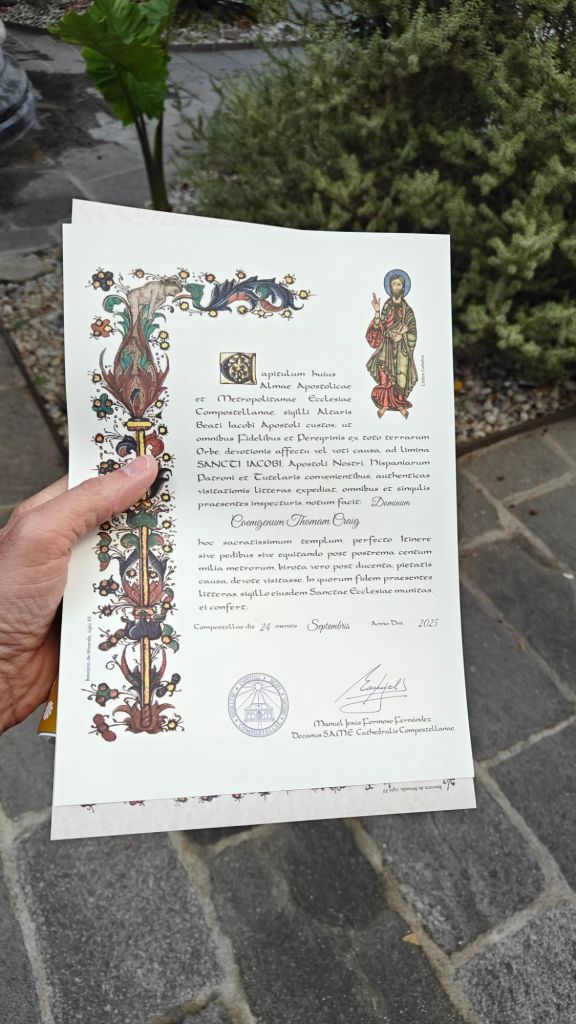 Capitulum huius
Almae Apostolicae
et Metropolitanae Ecclesiae
Compostellanae, sigilli Altaris
Beati Iacobi Apostoli custos, ut
omnibus Fidelibus et Peregrinis ex toto terrarum
Orbe, devotionis affectu vel voti causa, ad limina
SANCTI IACOBI, Apostoli Nostri, Hispaniarum
Patroni et Tutelaris convenientibus, authenticas
visitationis litteras expediat, omnibus et singulis
praesentes inspecturis, notum facit: Dominum
Coemgenum Thomam Craig
hoc sacratissimum templum, perfecto Itinere
sive pedibus sive equitando post postrema centum
milia metrorum, birota vero post ducenta, pietatis
causa, devote visitasse. In quorum fidem praesentes
litteras, sigillo eiusdem Sanctae Ecclesiae munitas,
ei confert.
Compostellae die 24 mensis Septembris Anno Dni 2025
Manuel Jesús Formoso Fernández
Decanus S.A.M.E. Cathedralis Compostellanae
Códice Calixtino
Breviario de Miranda, siglo XV
Breviario de Miranda, siglo XV